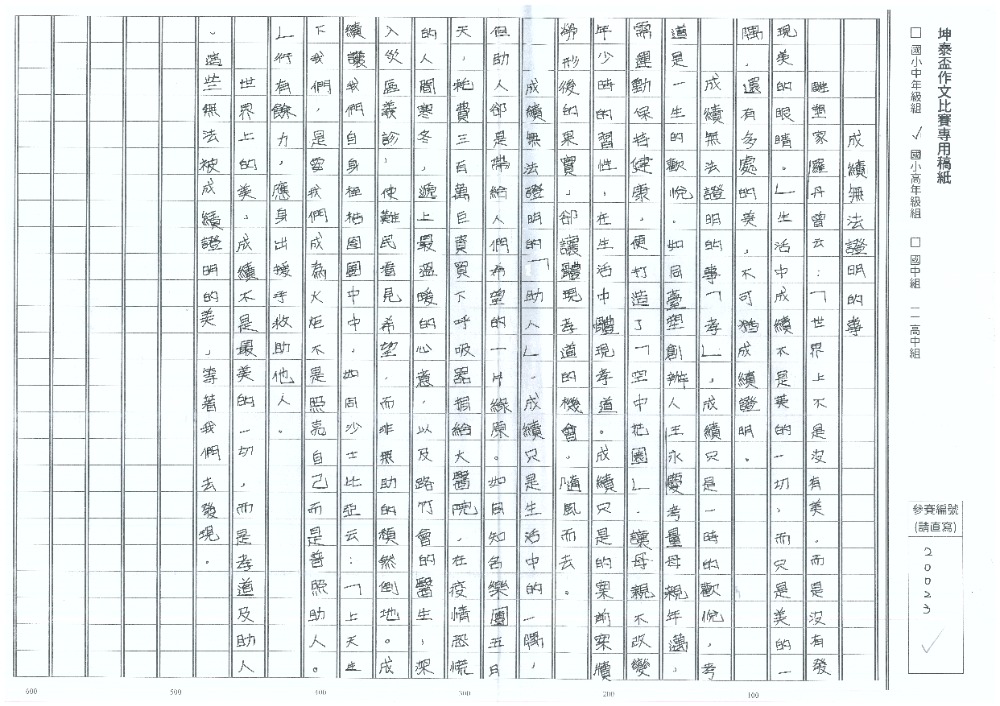 坤泰盃作文比賽專用稿紙
□ 國小中年級組 ✓ 國小高年級組 □ 國中組 □ 高中組
參賽編號
(請直寫)
20023
成績無法證明的事
雕塑家羅丹曾云:「世界上不是沒有美,而是沒有發
現美的眼睛。」生活中成績不是美的一切,而只是美的一
隅,還有多處的美,不可猶成績證明。
成績無法證明的事「孝」,成績只是一時的歡悅,孝
道是一生的歡悅。如同臺塑創辦人王永慶考量母親年邁,
需運動保持健康,便打造了「空中花園」,讓母親不改變
年少時的習性,在生活中體現孝道。成績只是的案前案牘
勞形後的果實,卻讓體現孝道的機會,隨風而去。
成績無法證明的「助人」,成績只是生活中的一隅,
但助人卻是帶給人們希望的一片綠原。如同知名樂團五月
天,耗費三百萬巨資買下呼吸器捐給大醫院,在疫情恐慌
的人間寒冬,遞上最溫暖的心意,以及路竹會的醫生,深
入災區義診,使難民看見希望,而非無助的頹然倒地。成
績讓我們自身極枯困中中,如同沙士比亞云:「上天生
下我們,是當我們成為火炬不是照亮自己而是普照助人。
」行有餘力,應身出援手救助他人。
世界上的美,成績不是最美的一切,而是孝道及助人
。這些無法被成績證明的美,等著我們去發現。
600
500
400
300
200
100